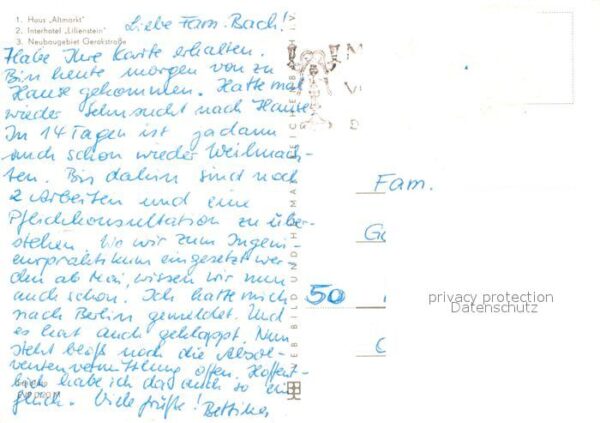 1. Haus „Altmarkt"
2. Interhotel „Lilienstein"
3. Neubaugebiet Gerokstraße
Liebe Fam. Bach!
Habe Ihre Karte erhalten.
Bin heute morgen von zu
Hause gekommen. Hatte mal
wieder Sehnsucht nach Hause
In 14 Tagen ist ja dann
auch schon wieder Weihnach-
ten. Bis dahin sind noch
2 Arbeiten und eine
Pflichtkonsultation zu über-
stehen. Wo wir zum Ingeni-
eurpraktikum eingesetzt wer-
den ab Mai, wissen wir nun
auch schon. Ich hatte mich
nach Berlin gemeldet. Und
es hat auch geklappt. Nun
steht bloß noch die Absol-
ventenvermittlung offen. Hoffent-
lich habe ich da auch so ein
Glück. Viele Grüße! Bettina
VEB BILD UND HEIMAT REICHENBACH I. V.
Fam.
50
privacy protection
Datenschutz